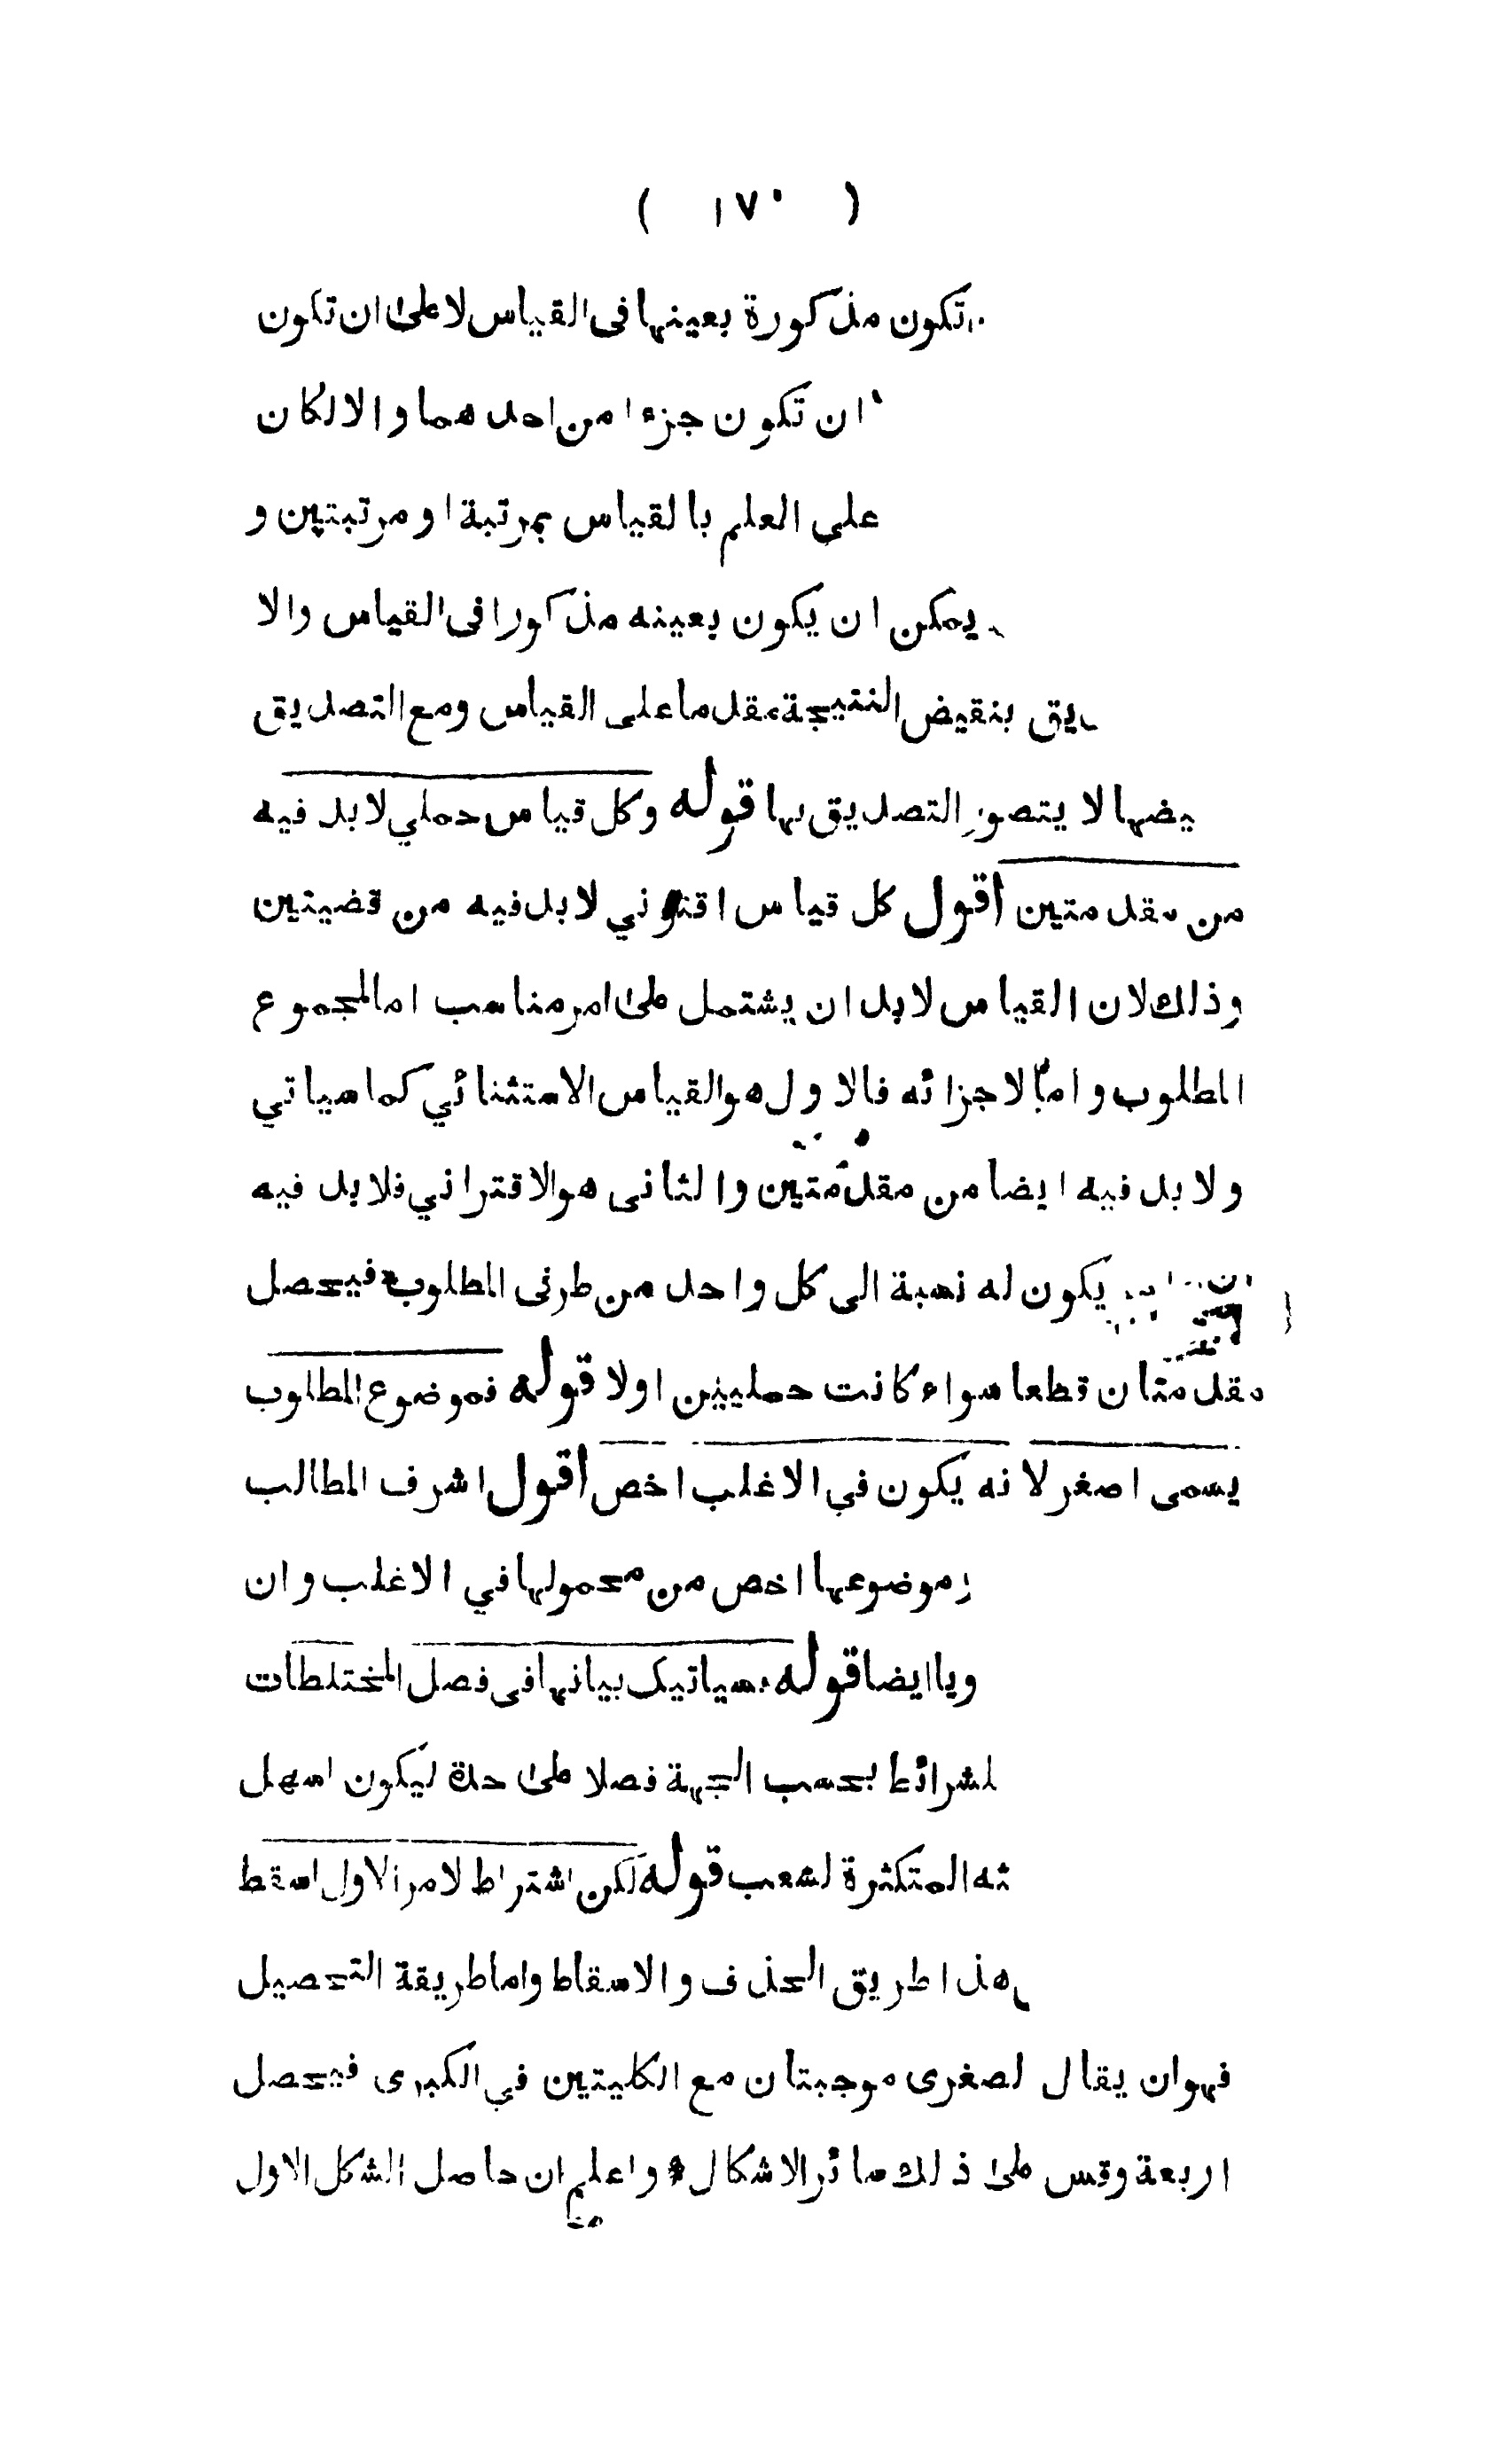 ( ١٧٠ )
تكون مذكورة بعينها في القياس لا على ان تكون
ان تكون جزءا من احدهما والا لكان
على العلم بالقياس بمرتبة او مرتبتين و
يمكن ان يكون بعينه مذكورا في القياس والا
يق بنقيض النتيجة مقدما على القياس ومع التصديق
يضها لا يتصور التصديق بها قوله وكل قياس حملي لا بد فيه
من مقدمتين اقول كل قياس اقتراني لا بد فيه من قضيتين
وذلك لان القياس لا بد ان يشتمل على امر مناسب اما لمجموع
المطلوب واما لاجزائه فالاول هو القياس الاستثنائي كما سياتي
ولا بد فيه ايضا من مقدمتين والثاني هو الاقتراني فلا بد فيه
يكون له نسبة الى كل واحد من طرفى المطلوب فيحصل
مقدمتان قطعا سواء كانت حمليين اولا قوله فموضوع المطلوب
يسمى اصغر لانه يكون في الاغلب اخص اقول اشرف المطالب
موضوعها اخص من محمولها في الاغلب وان
ويا ايضا قوله سياتيك بيانها في فصل المختلطات
لشرائط بحسب الجهة فصلا على حدة ليكون اسهل
ثه المتكثرة لشعب قوله لكن اشتراط لامر الاول اسقط
هذا طريق الحذف والاسقاط واما طريقة التحصيل
فهو ان يقال لصغرى موجبتان مع الكليتين في الكبرى فيحصل
اربعة وقس على ذلك سائر الاشكال واعلم ان حاصل الشكل الاول